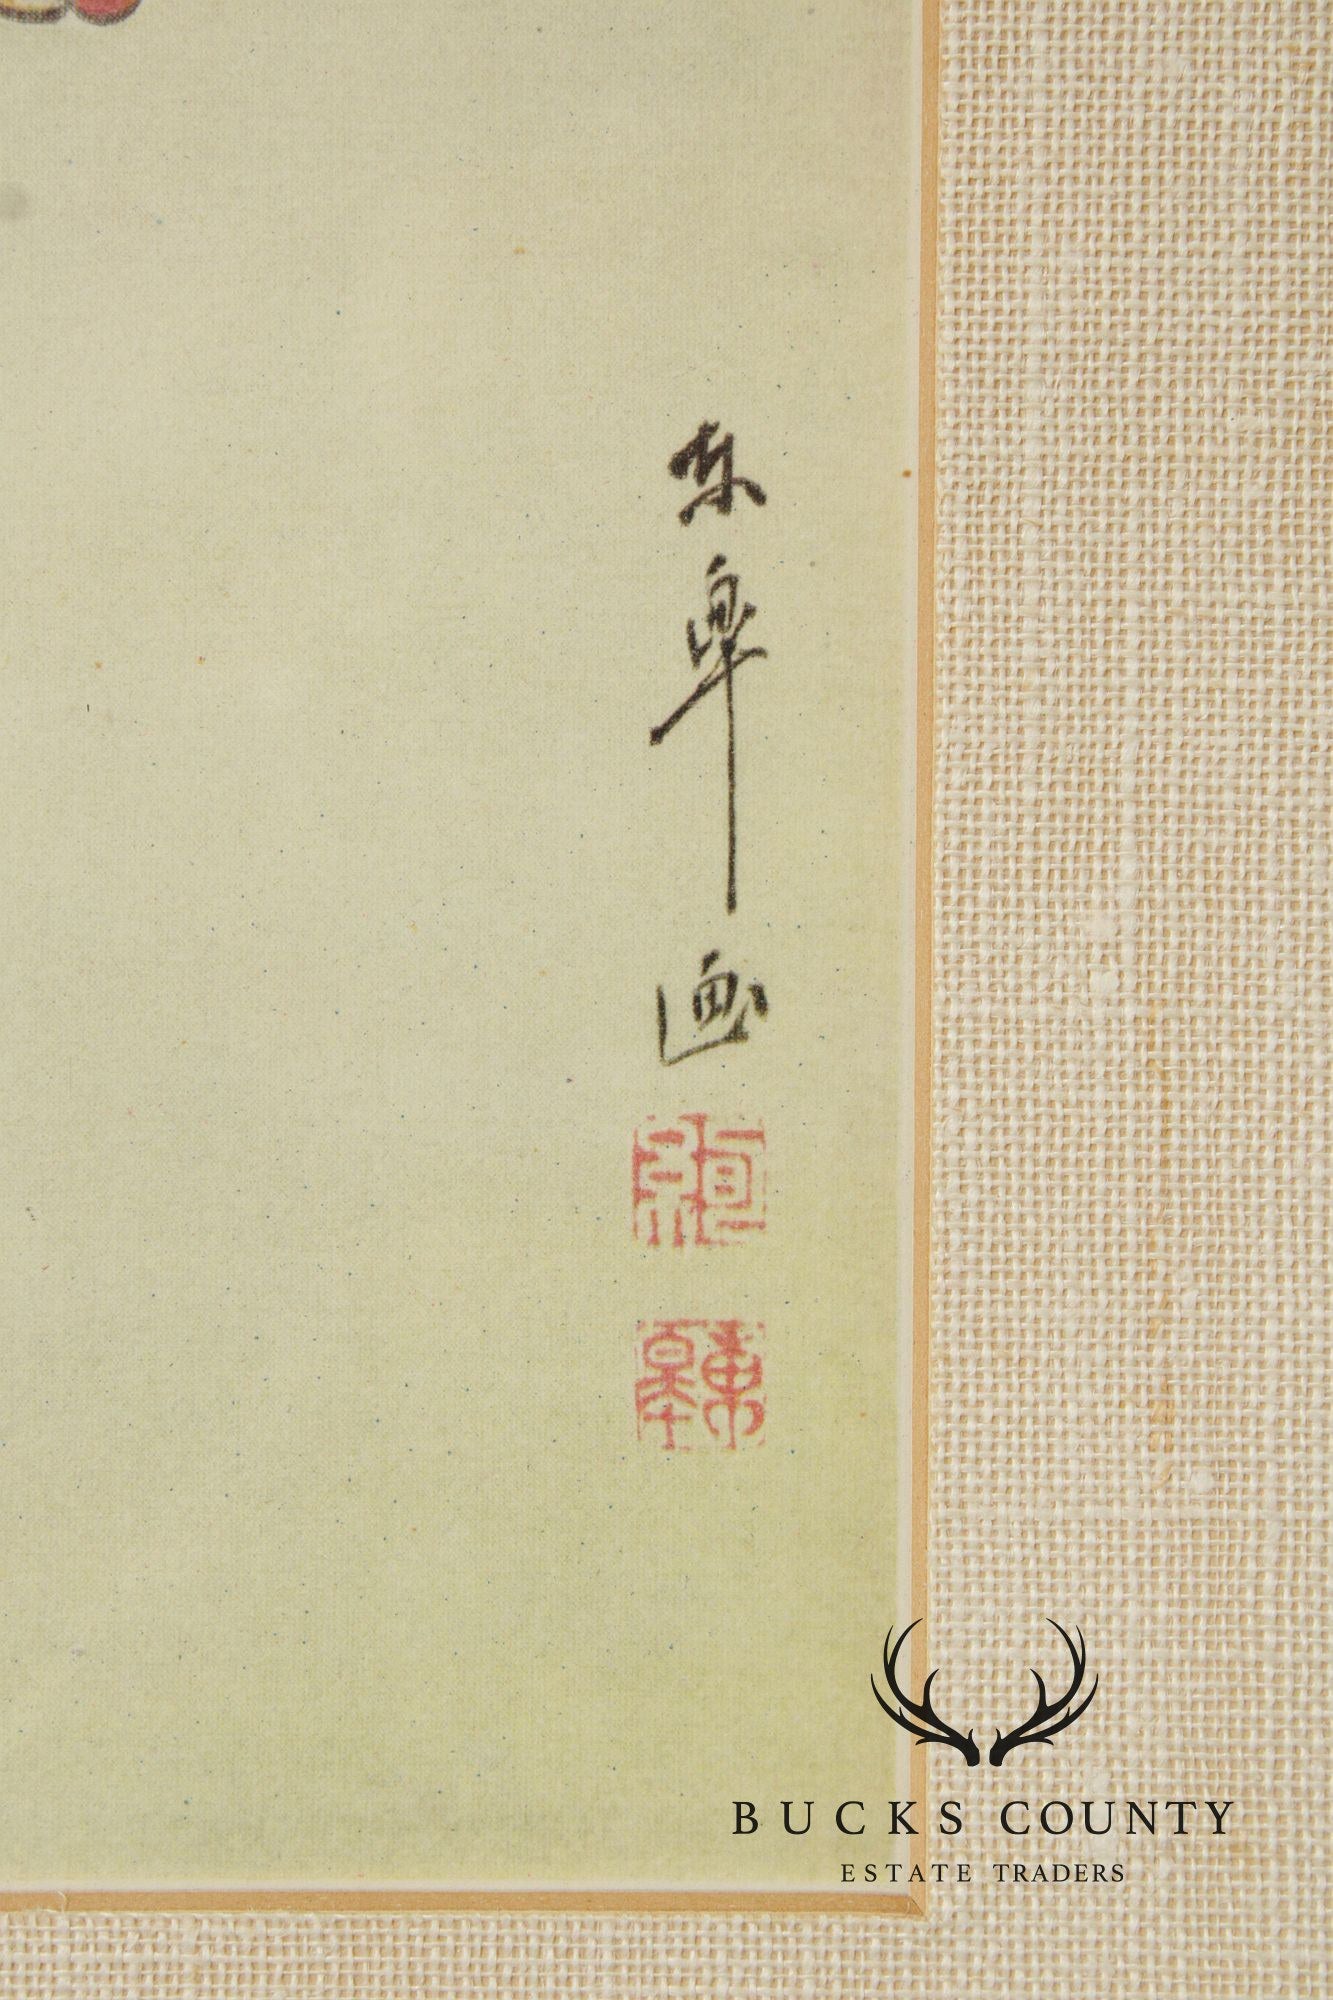 东皐画
絢
東皐
BUCKS COUNTY
ESTATE TRADERS